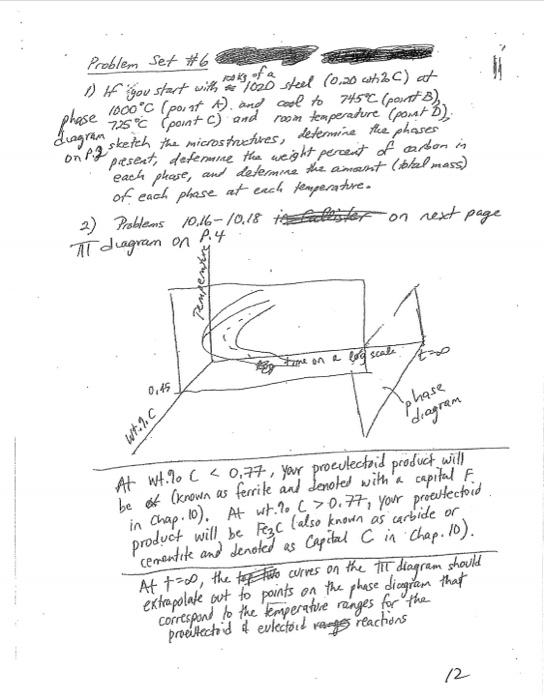 Problem Set #6
100 kg of a
1) If you start with 1020 steel (0.20 wt.% C) at
1000°C (point A) and cool to 745°C (point B),
phase 725°C (point C) and room temperature (point D),
diagram sketch the microstructures, determine the phases
on p.2 present, determine the weight percent of carbon in
each phase, and determine the amount (total mass)
of each phase at each temperature.
2) Problems 10.16-10.18 on next page
TTT diagram on P.4
Temperature
time on a log scale
t=∞
0.45
Wt.% C
phase
diagram
At wt.% C < 0.77, your proeutectoid product will
be α (known as ferrite and denoted with a capital F
in Chap. 10). At wt.% C > 0.77, your proeutectoid
product will be Fe3C (also known as carbide or
cementite and denoted as Capital C in Chap. 10).
At t=∞, the curves on the TTT diagram should
extrapolate out to points on the phase diagram that
correspond to the temperature ranges for the
proeutectoid & eutectoid reactions
12